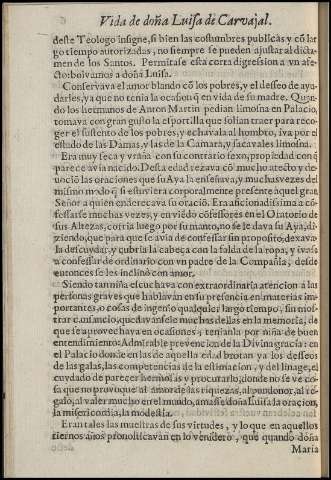 Vida de doña Luisa de Carvajal.
deste Teologo insigne, si bien las costumbres publicas y cō lar
go tiempo autorizadas, no siempre se pueden ajustar al dicta-
men de los Santos. Permitase esta corta digression a vn afe-
cto: bolvamos a doña Luisa.
Conservava el amor blando cō los pobres, y el desseo de ayu-
darles, ya que no tenia la ocasion q̄ en vida de su madre. Quan-
do los hermanos de Anton Martin pedian limosna en Palacio,
tomava con gran gusto la esportilla que solian traer para reco-
ger el sustento de los pobres, y echavala al hombro, iva por el
estado de las Damas, y las de la Camara, y sacavales limosna.
Era muy seca y vraña con su contrario sexo, propiedad con q̄
parece avia nacido. Desta edad rezava cō mucho afecto y de-
vociō las oraciones que su Aya la enseñava, y muchas vezes del
mismo modo q̄ si estuviera corporalmente presente aquel gran
Señor a quien enderecava su oraciō. Era aficionadissima a cō-
fessarse muchas vezes, y en viēdo cōfessores en el Oratorio de
sus Altezas, corria luego por su manto, no se le dava su Aya, di-
ziendo, que para que se avia de confessar sin proposito, dexava-
la descuydar, y cubria la cabeça con la falda de la ropa, y ivase
a confessar de ordinario con vn padre de la Compañia, desde
entonces se les inclinò con amor.
Siendo tan niña escuchava con extraordinaria atencion a las
personas graves que hablavan en su presencia en materias im-
portantes, o cosas de ingenio qualquier largo tiempo, sin mos-
trar cansancio, quedavansele muchas dellas en la memoria, de
que se aprovechava en ocasiones, tenianla por niña de buen
entendimiento. Admirable prevencion de la Divina gracia: en
el Palacio donde en las de aquella edad brotan ya los desseos
de las galas, las competencias de la estimacion, y del linage, el
cuydado de parecer hermosas y procurarlo, donde no se ve co-
sa que no provoque al amor de las riquezas, al pundonor, al re-
galo, al valer mucho en el mundo, amasse doña Luisa la oracion,
la misericordia, la modestia.
Eran tales las muestras de sus virtudes, y lo que en aquellos
tiernos años pronosticavan en lo venidero, que quando doña
Maria